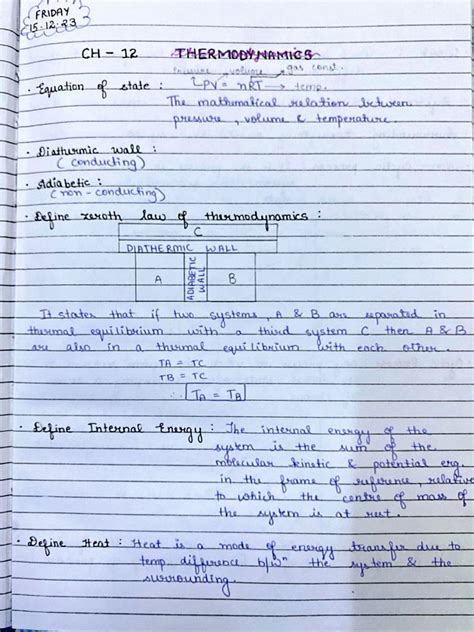 FRIDAY
15.12.23
CH - 12 THERMODYNAMICS
pressure volume gas const.
· Equation of state : PV = nRT → temp.
The mathematical relation between
pressure, volume & temperature.
· Diathermic wall :
( conducting)
· Adiabetic :
(non - conducting)
· Define zeroth law of thermodynamics :
C
DIATHERMIC WALL
A ADIABETIC WALL B
It states that if two systems, A & B are separated in
thermal equilibrium with a third system C then A & B
are also in a thermal equilibrium with each other.
TA = TC
TB = TC
∴ TA = TB
· Define Internal Energy : The internal energy of the
system is the sum of the
molecular kinetic & potential erg.
in the frame of reference, relative
to which the centre of mass of
the system is at rest.
· Define Heat : Heat is a mode of energy transfer due to
temp. difference b/wⁿ the system & the
surrounding.